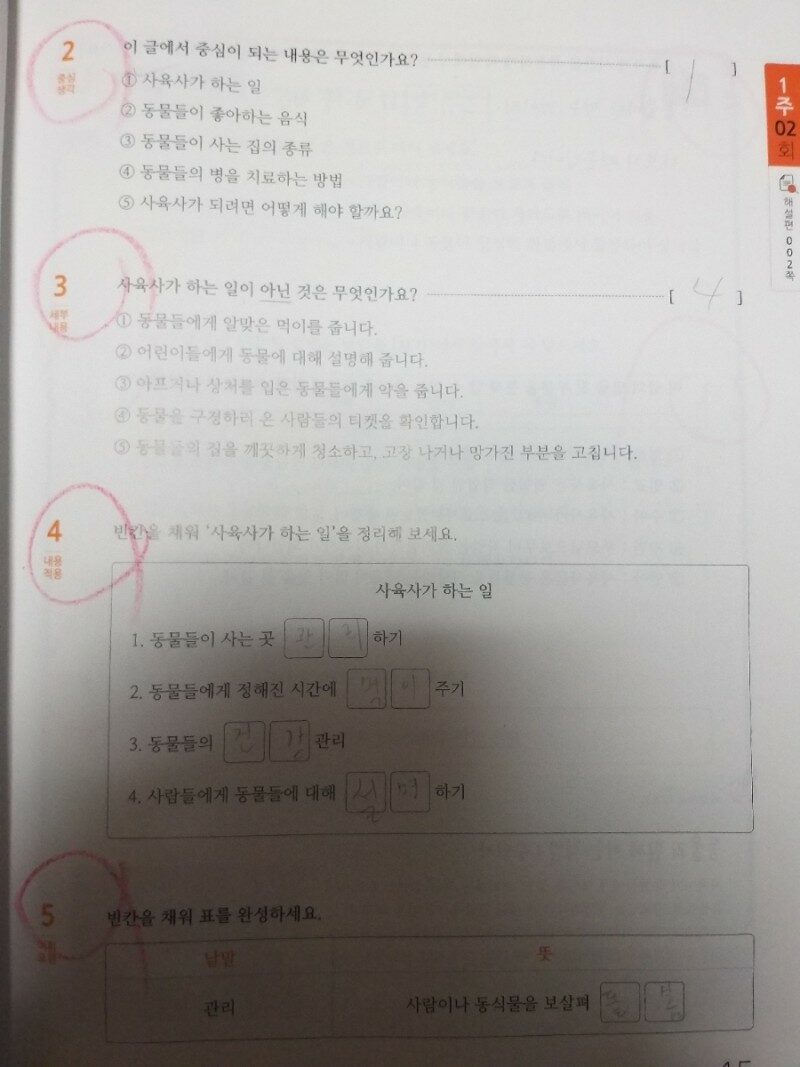 2
중심
생각
이 글에서 중심이 되는 내용은 무엇인가요? [ 1 ]
① 사육사가 하는 일
② 동물들이 좋아하는 음식
③ 동물들이 사는 집의 종류
④ 동물들의 병을 치료하는 방법
⑤ 사육사가 되려면 어떻게 해야 할까요?
1
주
02
회
해설편 002쪽
3
세부
내용
사육사가 하는 일이 아닌 것은 무엇인가요? [ 4 ]
① 동물들에게 알맞은 먹이를 줍니다.
② 어린이들에게 동물에 대해 설명해 줍니다.
③ 아프거나 상처를 입은 동물들에게 약을 줍니다.
④ 동물을 구경하러 온 사람들의 티켓을 확인합니다.
⑤ 동물들의 집을 깨끗하게 청소하고, 고장 나거나 망가진 부분을 고칩니다.
4
내용
적용
빈칸을 채워 '사육사가 하는 일'을 정리해 보세요.
사육사가 하는 일
1. 동물들이 사는 곳 관 리 하기
2. 동물들에게 정해진 시간에 먹 이 주기
3. 동물들의 건 강 관리
4. 사람들에게 동물들에 대해 설 명 하기
5
빈칸을 채워 표를 완성하세요.
낱말 뜻
관리 사람이나 동식물을 보살펴 돌 봄
15